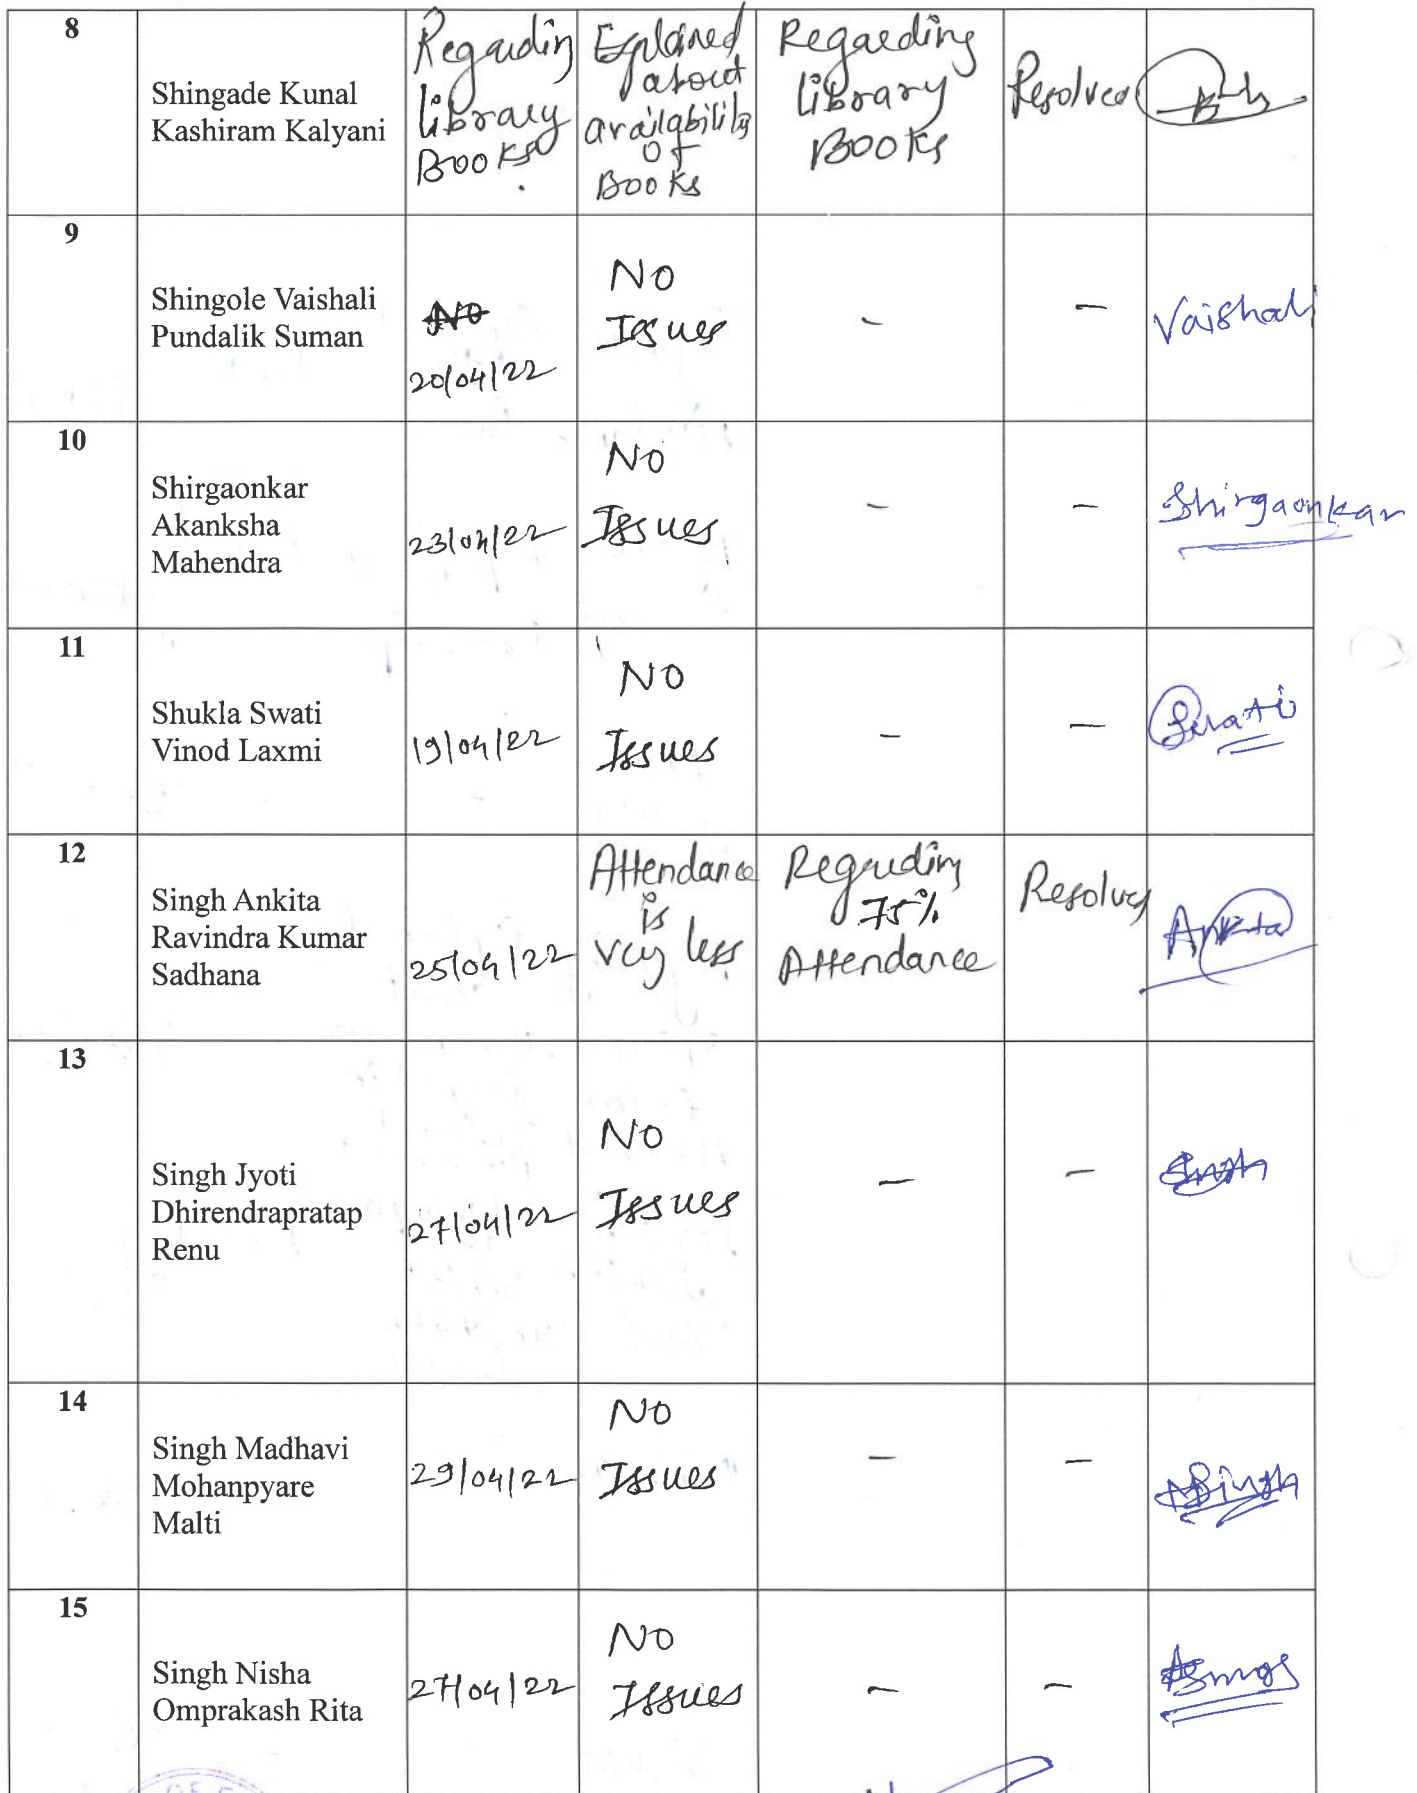 8
Shingade Kunal
Kashiram Kalyani
Regarding
library
Books
Explained
about
availability
of
Books
Regarding
library
Books
Resolved
9
Shingole Vaishali
Pundalik Suman
No
20/04/22
No
Issues
-
-
Vaishali
10
Shirgaonkar
Akanksha
Mahendra
23/04/22
No
Issues
-
-
Shirgaonkar
11
Shukla Swati
Vinod Laxmi
19/04/22
No
Issues
-
-
Swati
12
Singh Ankita
Ravindra Kumar
Sadhana
25/04/22
Attendance
is
very less
Regarding
75%
Attendance
Resolved
Ankita
13
Singh Jyoti
Dhirendrapratap
Renu
27/04/22
No
Issues
-
-
Singh
14
Singh Madhavi
Mohanpyare
Malti
29/04/22
No
Issues
-
-
MSingh
15
Singh Nisha
Omprakash Rita
27/04/22
No
Issues
-
-